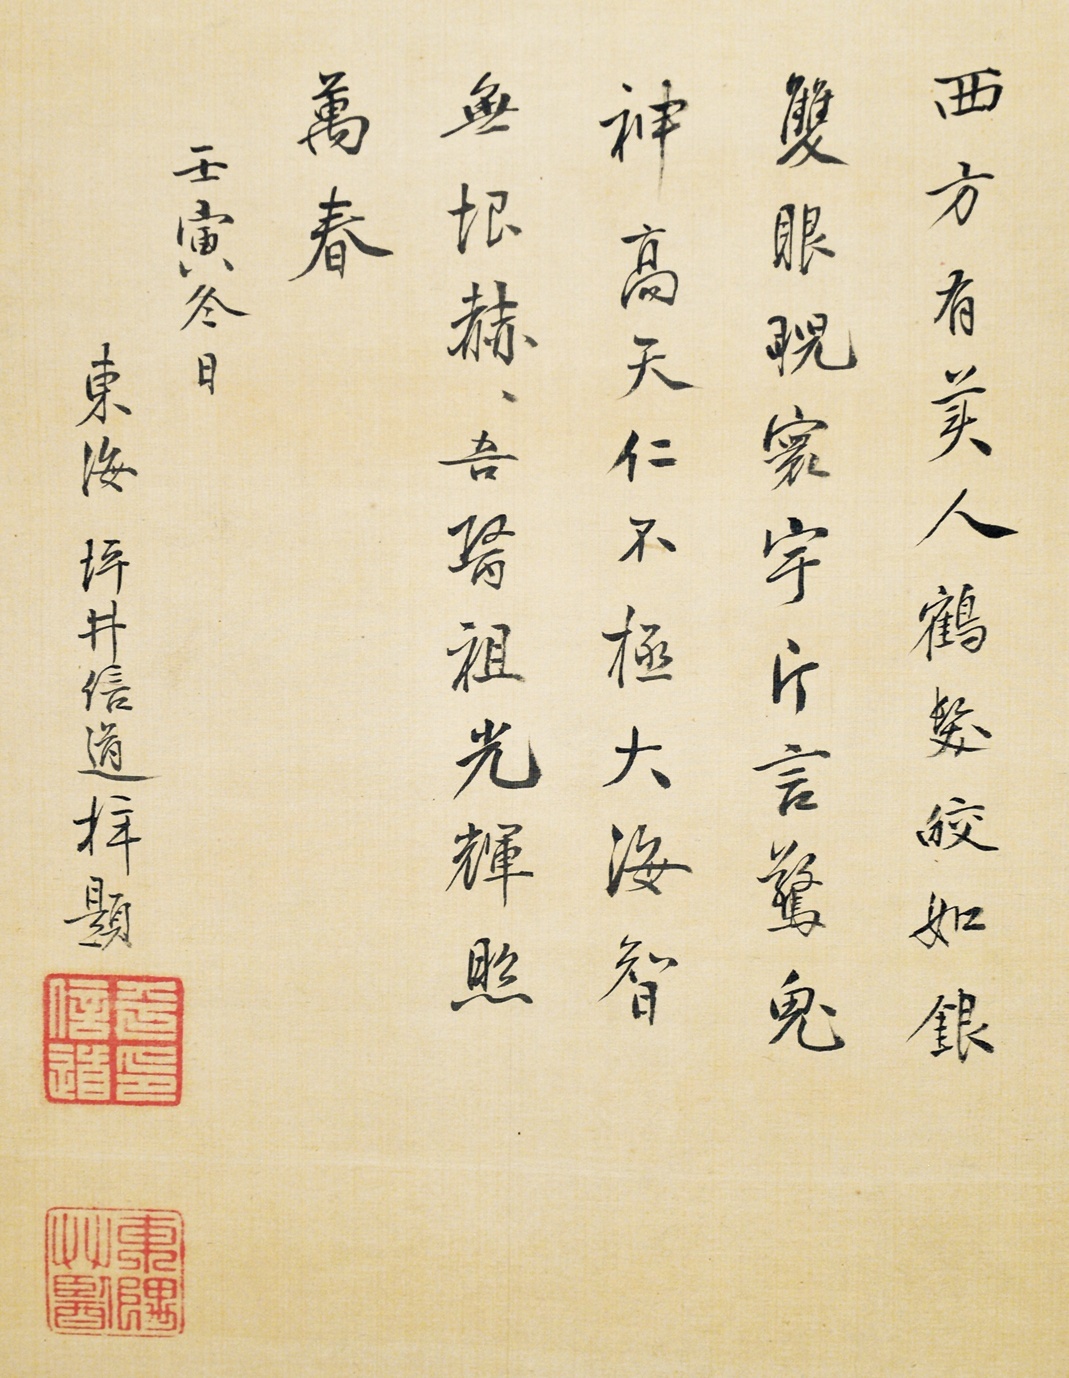 西方有美人鶴髮皎如銀
雙眼睨寰宇片言驚鬼
神高天仁不極大海智
無垠赫〻吾醫祖光輝照
萬春
壬寅冬日
東海 坪井信道拝題
信道
東隅
艸醫